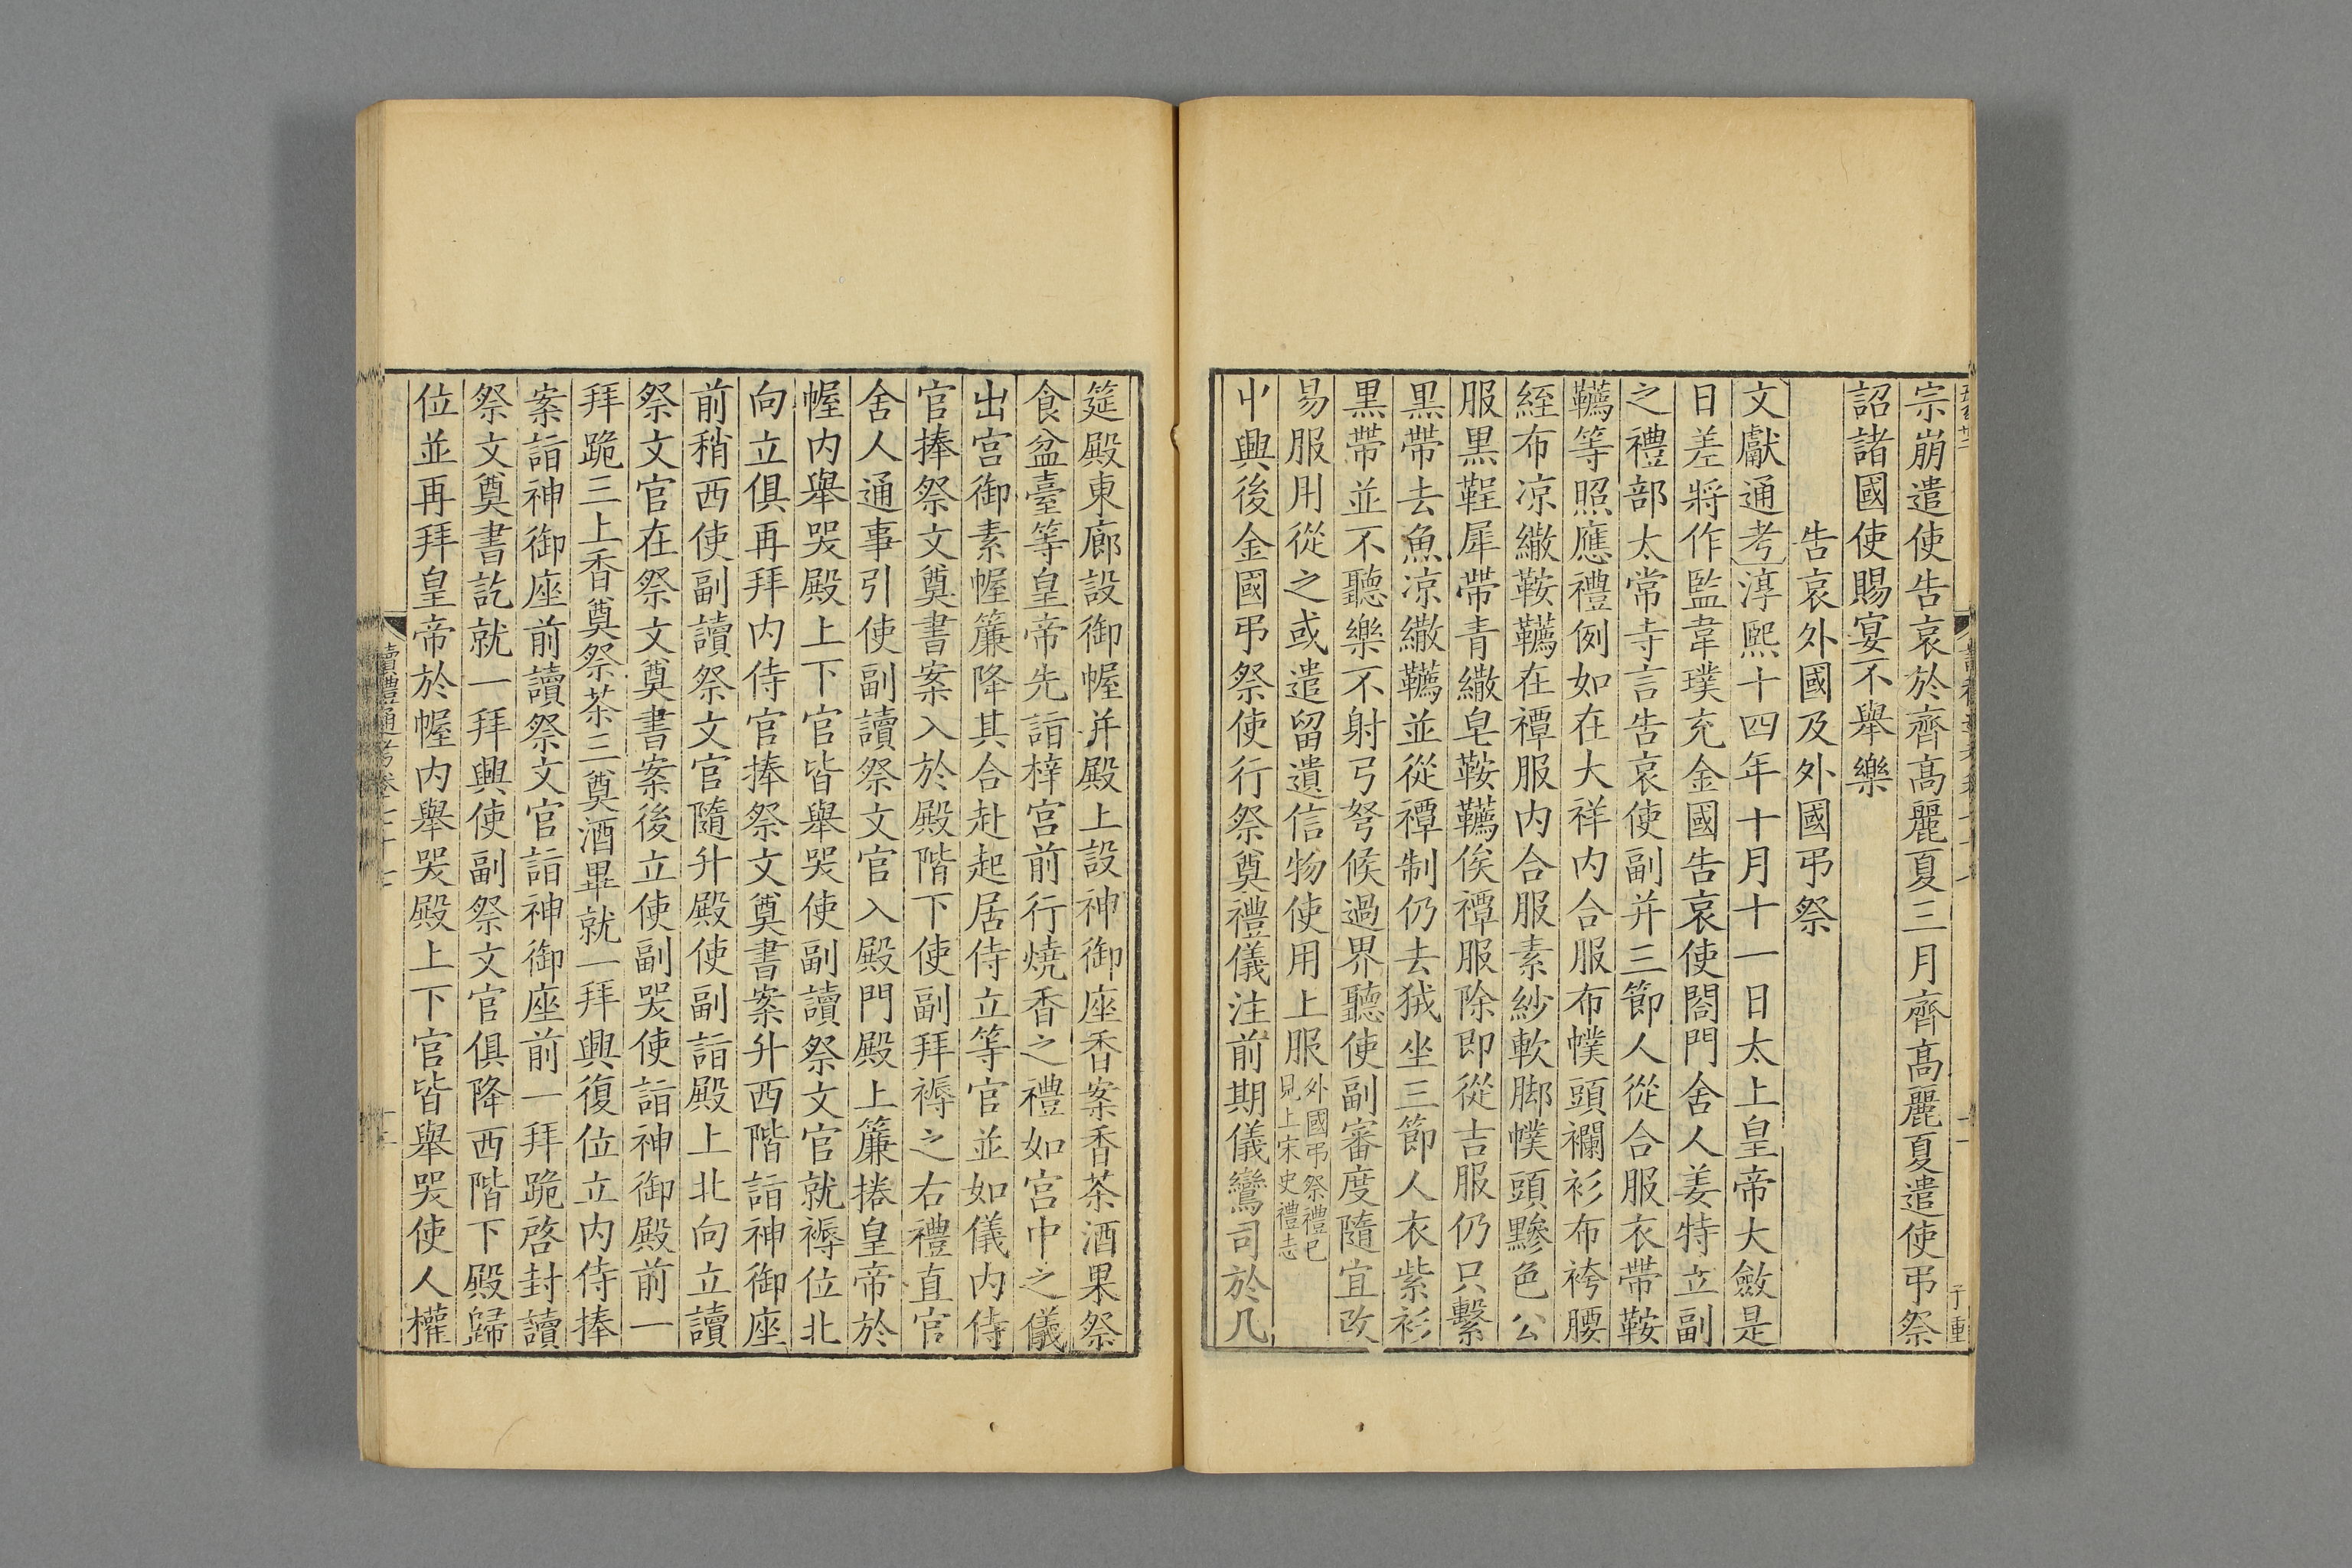 宗崩遣使告哀於齊高麗夏三月齊高麗夏遣使弔祭
詔諸國使賜宴不舉樂
告哀外國及外國弔祭
文獻通考淳熙十四年十月十一日太上皇帝大斂是
日差將作監韋璞充金國告哀使閤門舍人姜特立副
之禮部太常寺言告哀使副并三節人從合服衣帶鞍
韉等照應禮例如在大祥内合服布幞頭襴衫布袴腰
絰布凉繖鞍韉在禫服内合服素紗軟脚幞頭黲色公
服黒鞓犀帶青繖皂鞍韉俟禫服除即從吉服仍只繫
黒帶去魚凉繖韉並從禫制仍去狨坐三節人衣紫衫
黒帶並不聽樂不射弓弩候過界聽使副審度隨宜改
易服用從之或遣留遺信物使用上服外國弔祭禮已
見上宋史禮志
中興後金國弔祭使行祭奠禮儀注前期儀鸞司於几
筵殿東廊設御幄并殿上設神御座香案香茶酒果祭
食盆臺等皇帝先詣梓宮前行燒香之禮如宮中之儀
出宮御素幄簾降其合赴起居侍立等官並如儀内侍
官捧祭文奠書案入於殿階下使副拜褥之右禮直官
舍人通事引使副讀祭文官入殿門殿上簾捲皇帝於
幄内舉哭殿上下官皆舉哭使副讀祭文官就褥位北
向立俱再拜内侍官捧祭文奠書案升西階詣神御座
前稍西使副讀祭文官隨升殿使副詣殿上北向立讀
祭文官在祭文奠書案後立使副哭使詣神御殿前一
拜跪三上香奠祭茶三奠酒畢就一拜興復位立内侍捧
案詣神御座前讀祭文官詣神御座前一拜跪啓封讀
祭文奠書訖就一拜興使副祭文官俱降西階下殿歸
位並再拜皇帝於幄内舉哭殿上下官皆舉哭使人權
讀禮通考卷七十七